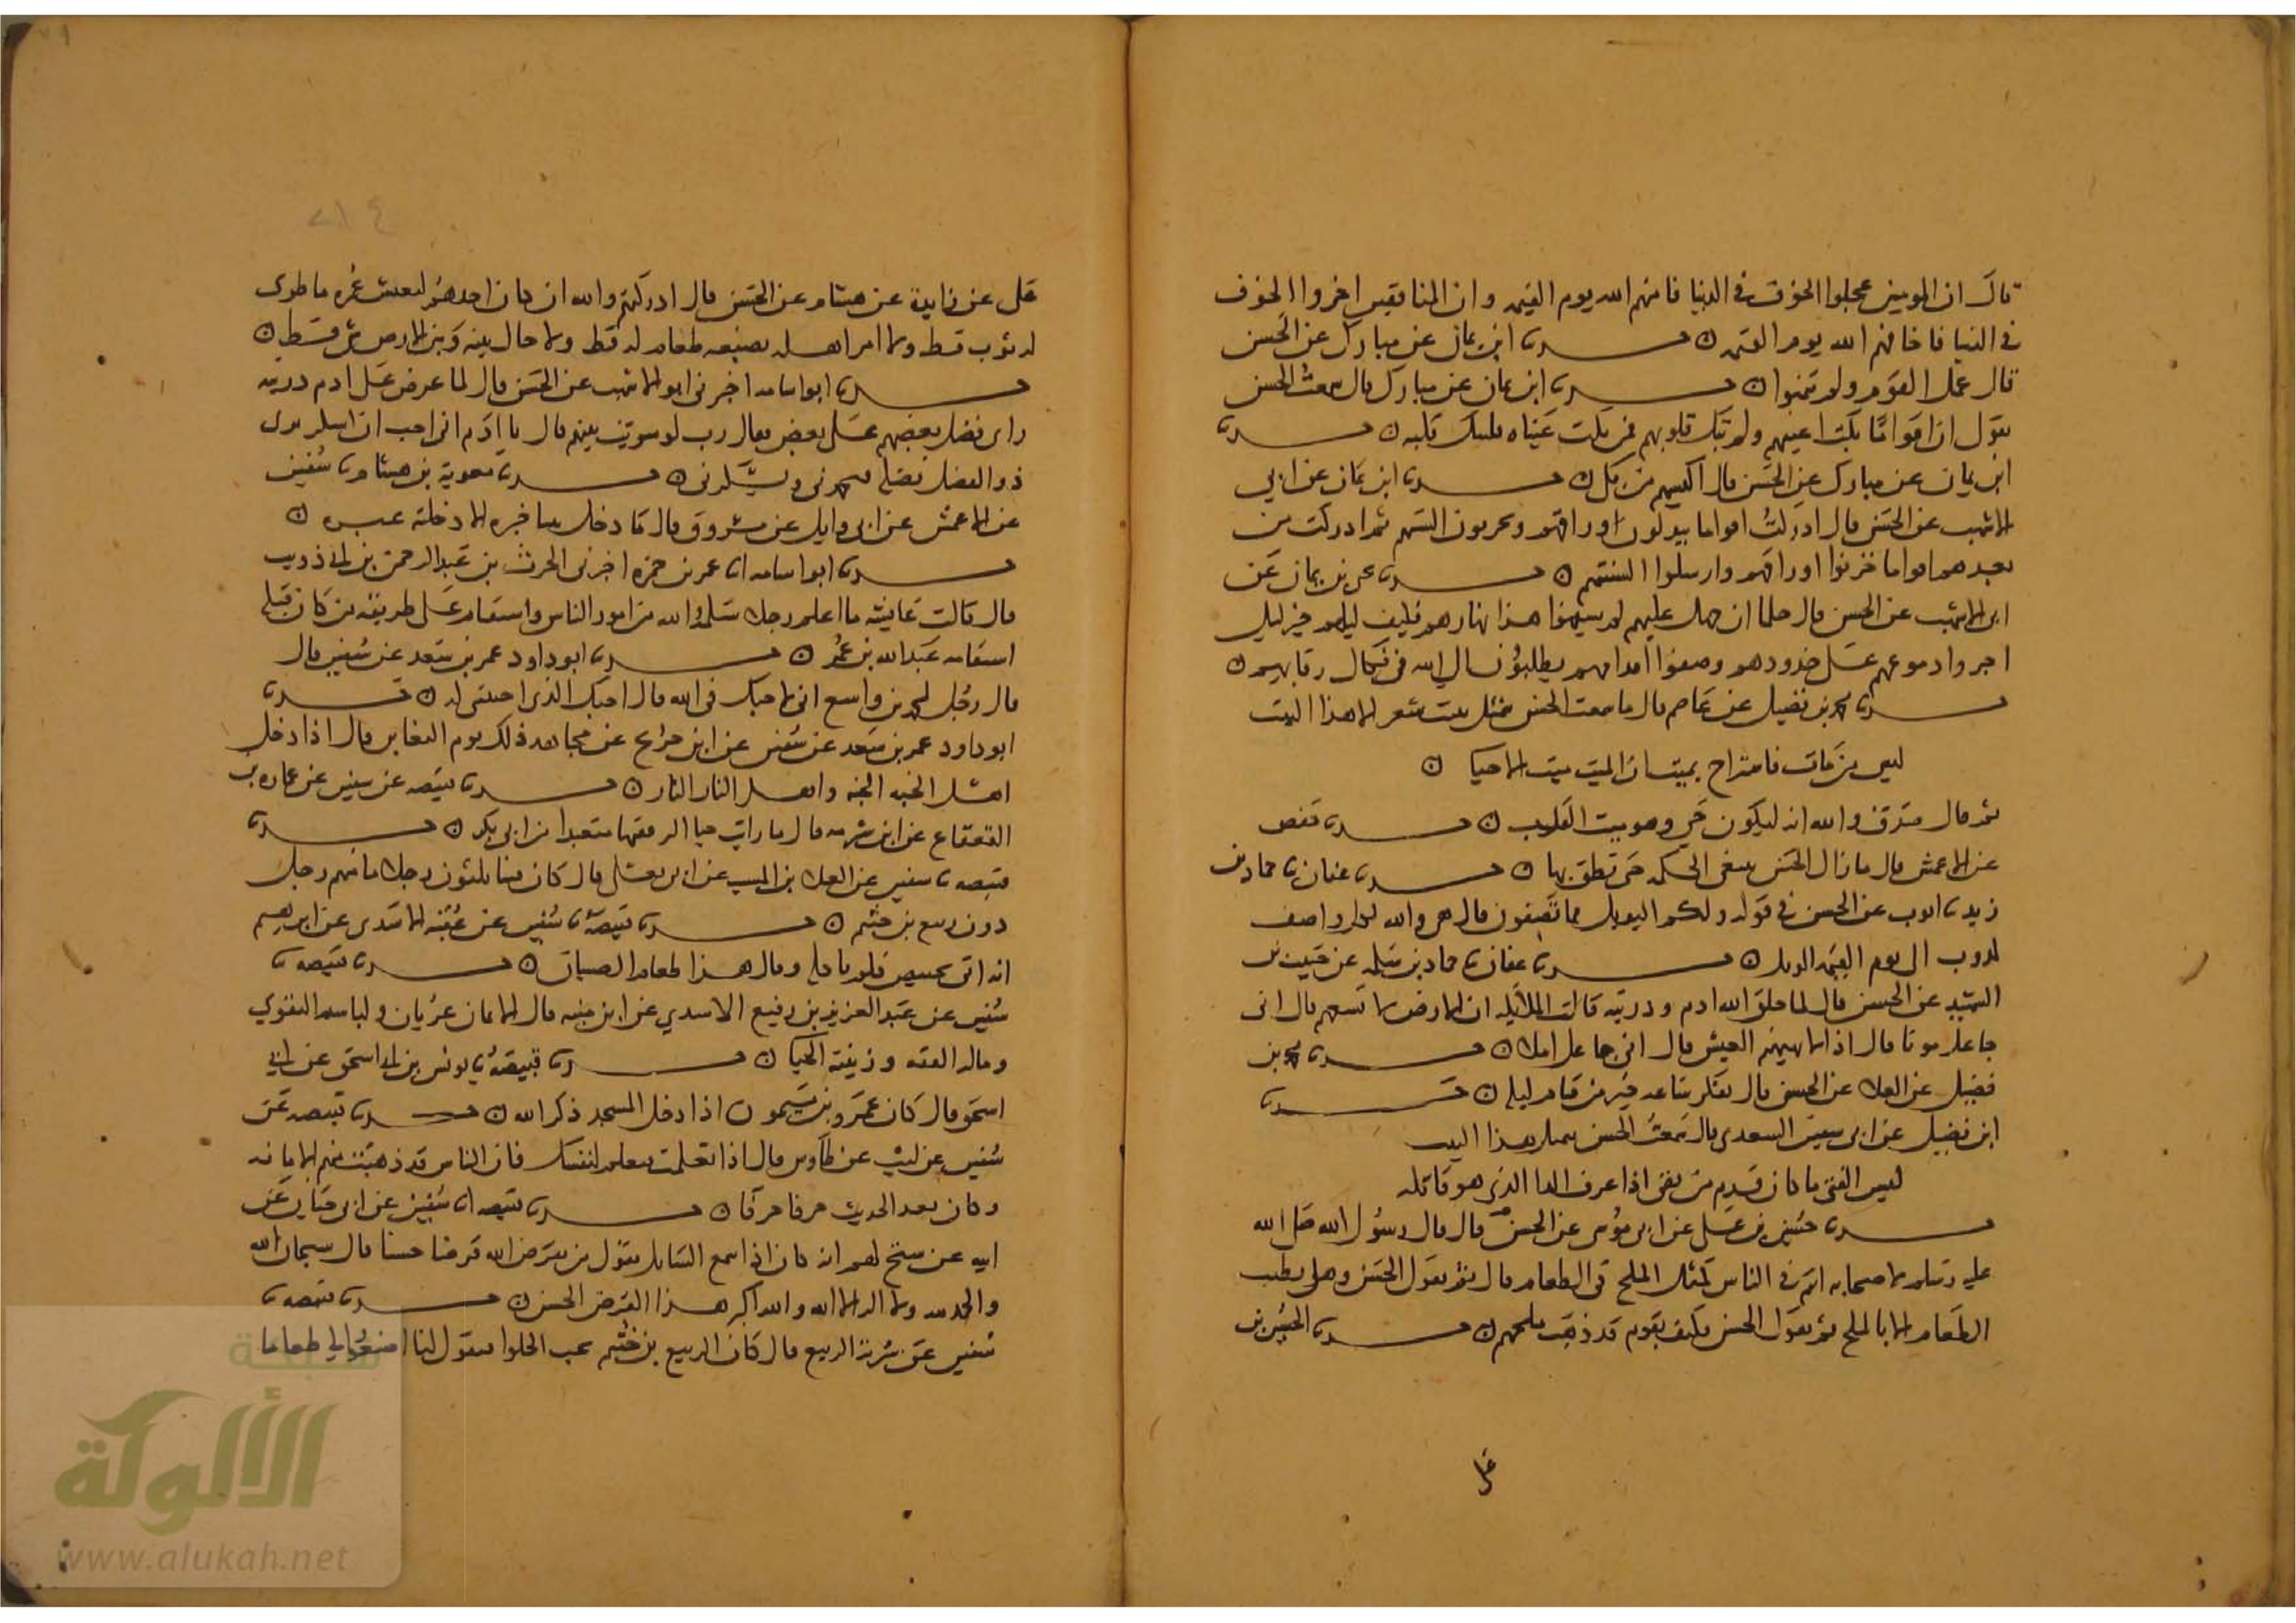 قال ان المومنين عجلوا الخوف في الدنيا فامنهم الله يوم القيمه وان المنافقين اخروا الخوف
في الدنيا فاخافهم الله يوم القيمه ن حدثنا ابن يمان عن مبارك عن الحسن
قال عمل القوم ولم يتمنوا ن حدثنا ابن يمان عن مبارك قال سمعت الحسن
يقول ان اقواما بكت اعينهم ولم تبك قلوبهم فمن بكت عيناه فليبك قلبه ن حدثنا
ابن يمان عن مبارك عن الحسن قال اكيسهم من بكى ن حدثنا ابن يمان عن ابي
الاشهب عن الحسن قال ادركت اقواما يبذلون اوراقهم ويخزنون السنتهم ثم ادركت من
بعدهم اقواما خزنوا اوراقهم وارسلوا السنتهم ن حدثنا يحيى بن يمان عن
ابي الاشهب عن الحسن قال حلما ان جهل عليهم لم يسفهوا هذا نهارهم فكيف ليلهم خير ليل
اجروا دموعهم على خدودهم وصفوا اقدامهم يطلبون الى الله في فكاك رقابهم ن
حدثنا محمد بن فضيل عن عاصم قال ما سمعت الحسن تمثل ببيت شعر الا هذا البيت
ليس من مات فاستراح بميت انما الميت ميت الاحيا ن
ثم قال صدق والله انه ليكون حي وهو ميت القلب ن حدثنا حفص
عن الاعمش قال مازال الحسن يبتغي الحكمه حتى نطق بها ن حدثنا عفان نا حماد بن
زيد نا ايوب عن الحسن في قوله ولكم الويل مما تصفون قال هي والله لكل واصف
كذوب الى يوم القيمه الويل ن حدثنا عفان نا حماد بن سلمه عن حبيب بن
الشهيد عن الحسن قال لما خلق الله ادم وذريته قالت الملايكه ان الارض لا تسعهم قال اني
جاعل موتا قال اذا لا يهنيهم العيش قال اني جاعل املا ن حدثنا محمد بن
فضيل عن العلا عن الحسن قال تفكر ساعه خير من قيام ليله ن حدثنا
ابن فضيل عن ابي سفين السعدي قال سمعت الحسن يتمثل هذا البيت
ليس الفتى ما كان قدم من تقى اذا عرف الدا الذي هو قاتله
حدثنا حسين بن علي عن ابي موسى عن الحسن قال قال رسول الله صلى الله
عليه وسلم لاصحابه انتم في الناس كمثل الملح في الطعام قال ثم يقول الحسن وهل يطيب
الطعام الا بالملح ثم يقول الحسن فكيف بقوم قد ذهب ملحهم ن حدثنا الحسين بن
علي
علي عن زايدة عن هشام عن الحسن قال ادركتهم والله ان كان احدهم ليعيش عمره ما طوى
له ثوب قط ولا امر اهله بصنعه طعام له قط ولا حال بينه وبين الارض شي قط ن
حدثنا ابو اسامه اخبرني ابو الاشهب عن الحسن قال لما عرض على ادم ذريته
راى فضل بعضهم على بعض فقال رب لو سويت بينهم قال يا ادم اني احب ان اشكر يرى
ذو الفضل فضله فيحمدني ويشكرني ن حدثنا معوية بن هشام نا سفين
عن الاعمش عن ابي وايل عن مسروق قال ما دخل بيتا حبره الا دخلته عبره ن
حدثنا ابو اسامه نا عمر بن حمزه اخبرني الحرث بن عبد الرحمن بن ابي ذويب
قال قالت عايشه ما اعلم رجلا سلمه الله من امور الناس واستقام على طريقه من كان قبله
استقامه عبد الله بن عمر ن حدثنا ابو داود عمر بن سعد عن سفين قال
قال رجل لمحمد بن واسع اني لاحبك في الله قال احبك الذي احببتني له ن حدثنا
ابو داود عمر بن سعد عن سفين عن ابن جريج عن مجاهد ذلك يوم التغابن قال اذا دخل
اهل الجنه الجنه واهل النار النار ن حدثنا قبيصه عن سفين عن عماره بن
القعقاع عن ابن شبرمه قال ما رايت حيا اكثر فقيها متعبدا من ابي بكر ن حدثنا
قبيصه نا سفين عن العلا بن المسيب عن ابي يعلى قال كان فينا ثلثون رجلا ما منهم رجل
دون ربيع بن خثيم ن حدثنا قبيصه نا سفين عن عقبه الاسدي عن ابرهيم
انه اتي بخبيص فلم ياكله وقال هذا طعام الصبيان ن حدثنا قبيصه نا
سفين عن عبد العزيز بن رفيع الاسدي عن ابن منبه قال الايمان عريان ولباسه التقوي
وماله الفقه وزينته الحيا ن حدثنا قبيصه نا يونس بن ابي اسحق عن ابي
اسحق قال كان عمرو بن ميمون اذا دخل المسجد ذكر الله ن حدثنا قبيصه عن
سفين عن ليث عن طاوس قال اذا تعلمت فتعلم لنفسك فان الناس قد ذهبت منهم الامانه
وكان يعد الحديث حرفا حرفا ن حدثنا قبيصه نا سفين عن ابي حيان عن
ابيه عن شيخ لهم انه كان اذا سمع السايل يقول من يقرض الله قرضا حسنا قال سبحان الله
والحمد لله ولا اله الا الله والله اكبر هذا القرض الحسن ن حدثنا قبيصه نا
سفين عن سرية الربيع قال كان الربيع بن خثيم يحب الحلوا فيقول لنا اصنعوا لي طعاما
شبكة
الألوكة
www.alukah.net